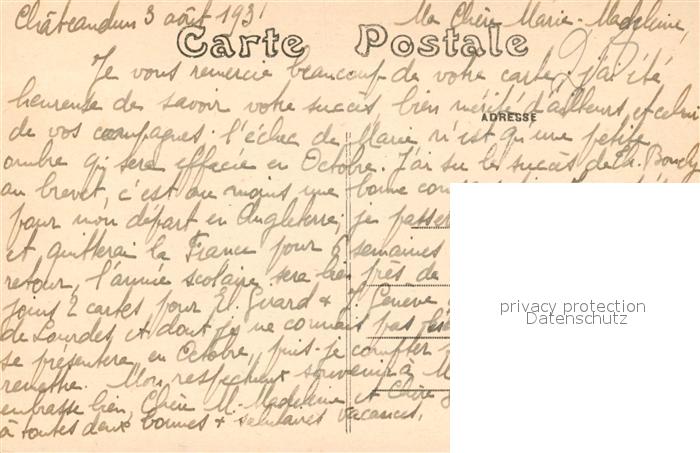 Châteaudun 3 août 1931
Ma Chère Marie-Madeleine,
Carte Postale
Je vous remercie beaucoup de votre carte, j'ai été
heureuse de savoir votre succès, bien mérité d'ailleurs, et celui
ADRESSE
de vos compagnes. l'échec de Marie n'est qu'une petite
ombre qi sera effacée en Octobre. J'ai su les succès de
au brevet, c'est au moins une bonne
pour mon départ en Angleterre; je passer
et quitterai la France pour 6 semaines
retour, l'année scolaire sera bien près de
joins 2 cartes pour & Geneve
de Lourdes, et dont je ne connais pas
se présentera en Octobre, puis-je compter
remettre. Mon respectueux souvenir à M
embrasse bien, Chère M. Madeleine et Chère
à toutes deux bonnes & salutaires vacances.
privacy protection
Datenschutz